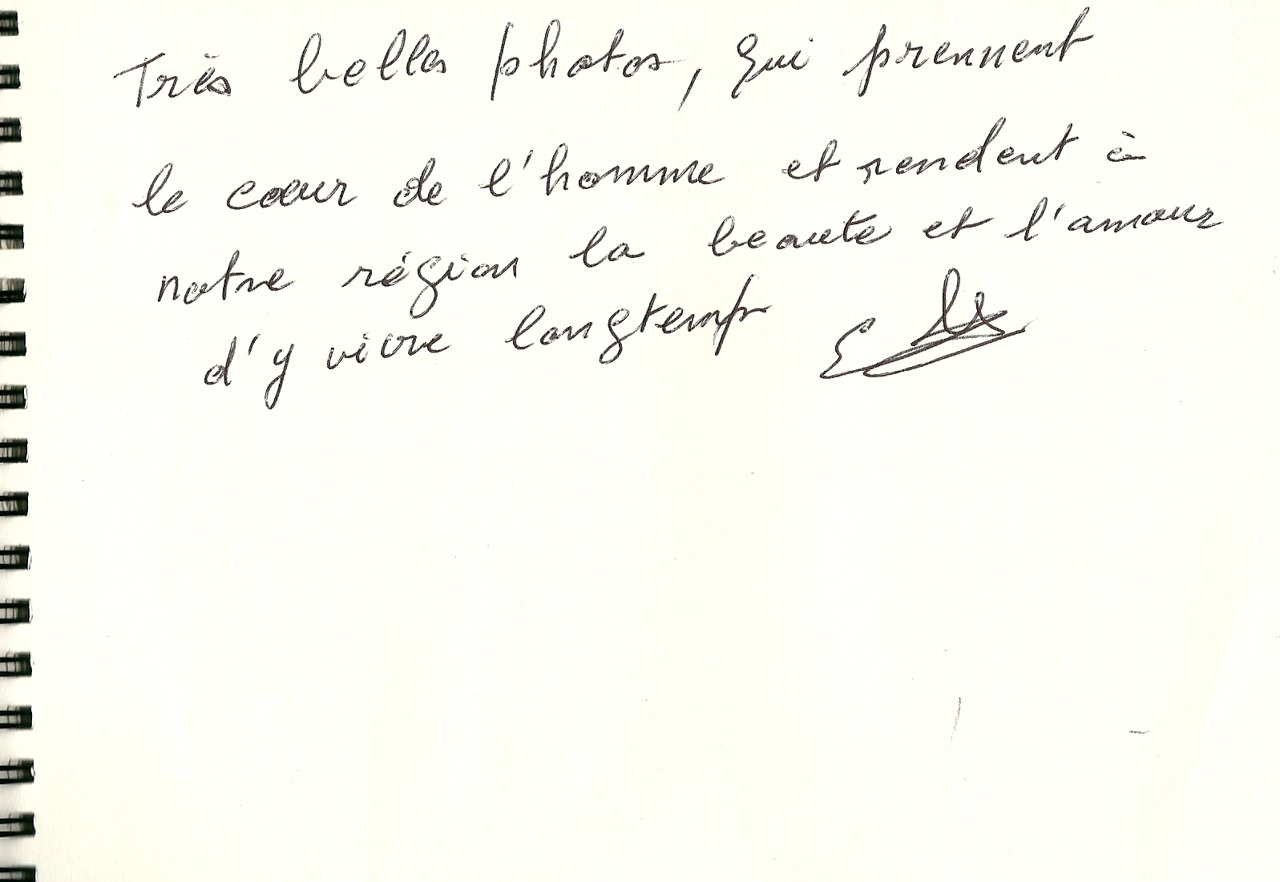 Très belles photos, qui prennent
le coeur de l'homme et rendent à
notre région la beauté et l'amour
d'y vivre longtemps